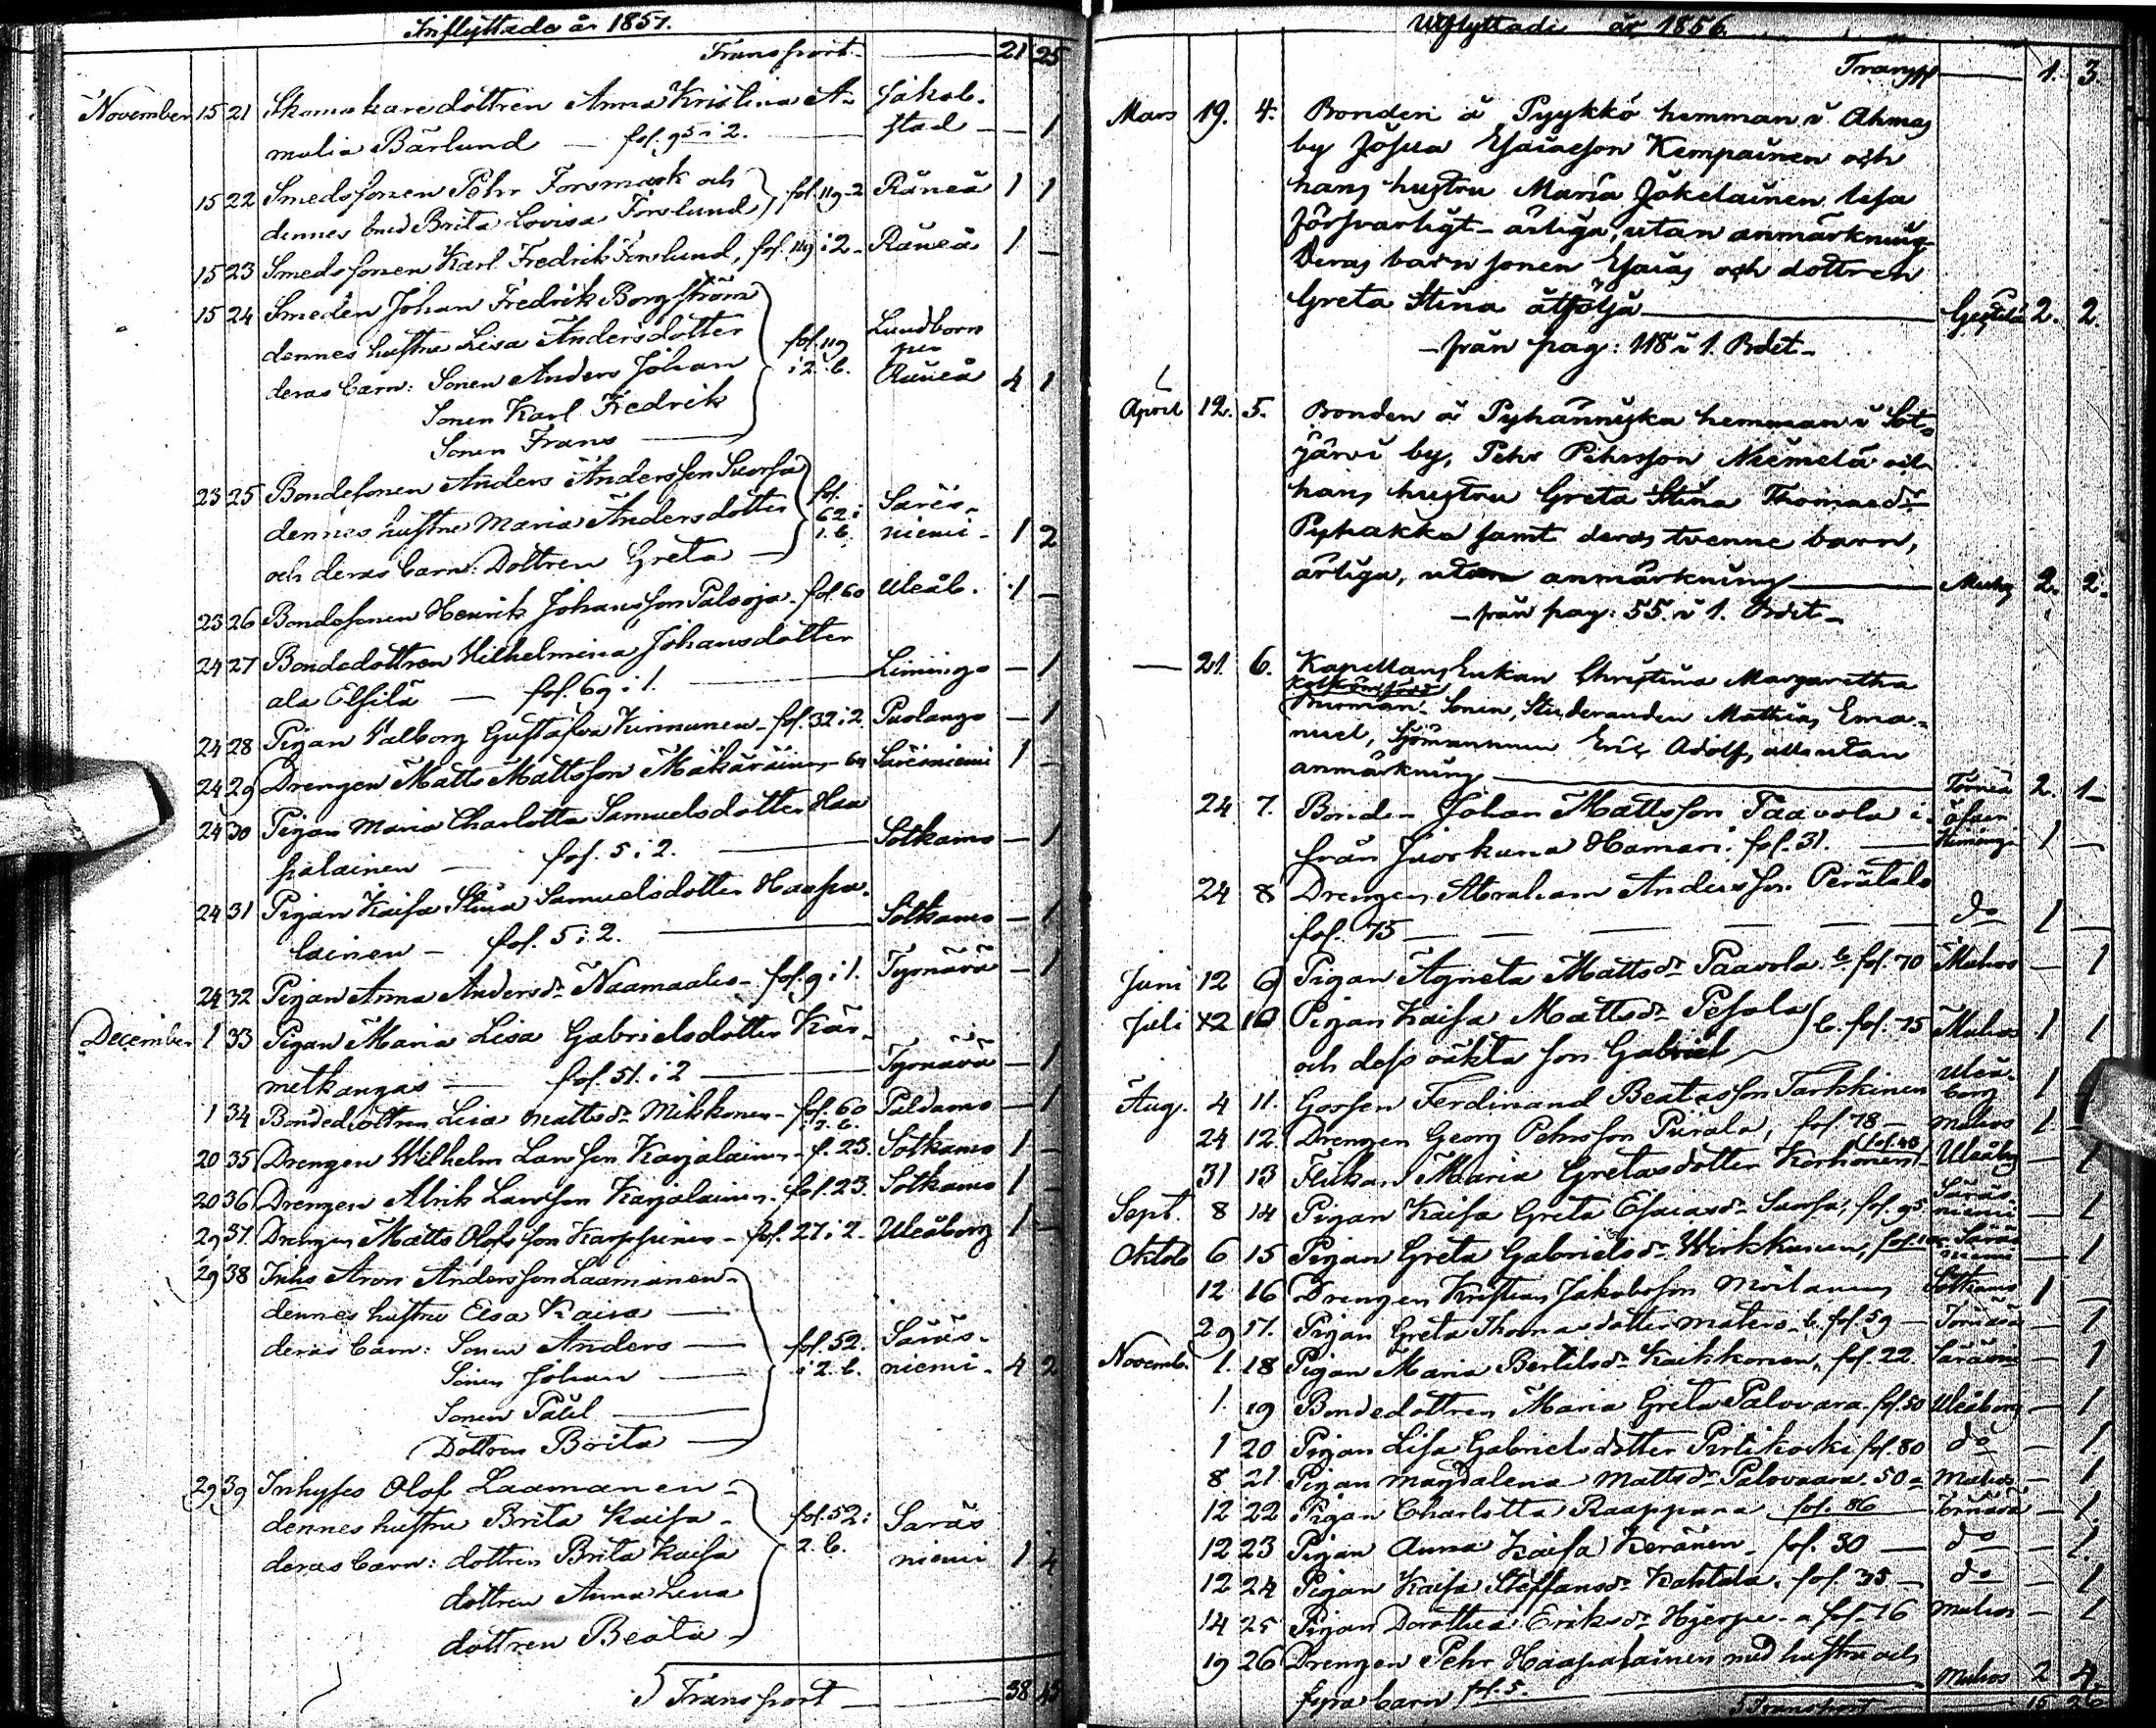 Inflyttade år 1857.
Transport 21 25
November 15 21 Skomakaredottren Anna Kristina A- Jakob-
malia Bärlund fol. 95 i 2. stad - 1
15 22 Smedssonen Pehr Forsmark och fol. 119-2 Råneå 1 1
dennes brud Brita Lovisa Forslund
15 23 Smedssonen Karl Fredrik Forslund, fol. 119 i 2 - Råneå 1 -
15 24 Smeden Johan Fredrik Borgström
dennes hustru Lisa Andersdotter fol. 119
deras barn: Sonen Anders Johan i 2. b. Råneå 4 1
Sonen Karl Fredrik
Sonen Frans
23 25 Bondesonen Andersson fol.
dennes hustru Maria Andersdotter 62 i Säräs-
och deras barn: Dottren Greta 1. b. niemi - 1 2
23 26 Bondesonen Henrik Johansson Palooja - fol 60 Uleåb. 1 -
24 27 Bondedottren Wilhelmina Johansdotter
ala fol. 69 i 1. Limingo - 1
24 28 Pigan Valborg Gustafva Kinnunen - fol. 32 i 2. Puolango - 1
24 29 Drengen Matts Mattsson Mäkäräinen - 64 Säräisniemi 1 -
24 30 Pigan Maria Charlotta Samuelsdotter Haa
palainen fol. 5 i 2. Sotkamo - 1
24 31 Pigan Kaisa Stina Samuelsdotter Haapa-
lainen - fol. 5 i 2. Sotkamo - 1
24 32 Pigan Anna Andersdr Naamaales - fol. 9 i 1. Tyrnävä - 1
December 1 33 Pigan Maria Lisa Gabrielsdotter Kär-
metkangas fol. 51. i 2 Tyrnävä - 1
1 34 Bondedottren Lisa Mattsdr Mikkonen - fol. 60 Paldamo - 1
20 35 Drengen Wilhelm Larsson Karjalainen - f. 23. Sotkamo 1 -
20 36 Drengen Alrik Larsson Karjalainen, fol. 23. Sotkamo 1 -
29 37 Drengen Matts Olofsson Karppinen - fol. 27 i 2. Uleåborg 1 -
29 38 Inhs Aron Andersson Laamanen
dennes hustru Elsa Kaisa
deras barn: Sonen Anders fol. 52. Säräs-
Sonen Johan i 2. b. niemi - 4 2
Sonen Paul
Dottren Brita
29 39 Inhyses Olof Laamanen -
dennes hustru Brita Kaisa - fol. 52 i Säräs
deras barn: dottren Brita Kaisa 2. b. niemi 1 4
dottren Anna Lena
dottren Beata
Transport 38 45
Utflyttade år 1856.
Transp 1. 3.
Mars 19. 4. Bonden å Pyykkö hemman i Ahmas
by Josua Esaiasson Kempainen och
hans hustru Maria Jokelainen läsa
försvarligt - ärliga, utan anmärkning
Deras barn sonen Esaias och dottren
Greta Stina åtfölja 2. 2.
- från pag: 118 i 1. Bdet -
April 12. 5. Bonden å Pyhänniska hemman i Sot-
järvi by, Pehr Pehrsson Niemelä och
hans hustru Greta Stina Thomasdr
Pyhakka samt deras tvenne barn,
ärliga, utan anmärkning Muhos 2. 2.
- från pag: 55. i 1. Bdet -
- 21. 6. Kapellans Enkan Christina Margaretha
Sonen, Studeranden Mathias Ema-
nuel, Sjömannen Eric Adolf, alla utan
anmärkning Torneå 2. 1
24 7. Bonden Johan Mattsson Paavola i
från Juorkuna Hamari. fol. 31. 1 -
24 8 Drengen Abraham Andersson Perätalo
fol. 75 do 1 -
Juni 12 9 Pigan Agneta Mattsdr Paavola b. fol. 70 Muhos - 1
Juli 12 10 Pigan Kaisa Mattsdr Pesola b. fol. 75 Muhos 1 1
och dess oäkta son Gabriel
Aug. 4 11. Gossen Ferdinand Beatasson Tarkkinen Uleå-borg 1 -
24 12. Drengen Georg Pehrsson Piirala, fol. 78 - Muhos 1 -
31 13 Flickan Maria Gretasdotter Korhonen Uleåbg - 1
Sept. 8 14 Pigan Kaisa Greta Esaiasdr fol. 95 Säräs-niemi - 1
Oktob 6 15 Pigan Greta Gabrielsdr Wirkkunen, Säräs niemi - 1
12 16 Drengen Kristian Jakobsson Moilanen Sotkamo 1 -
29 17. Pigan Greta Thomasdotter Matero - b. fol. 59 - Tornävä - 1
Novemb. 1. 18 Pigan Maria Bertilsdr Kaikkonen, fol. 22. Säräsni - 1
1. 19 Bondedottren Maria Greta Palovaara fol. 50 Uleåborg - 1
1 20 Pigan Lisa Gabrielsdotter Pirtikoski fol. 80 do - 1
8. 21 Pigan Magdalena Mattsdr Palovaara 50 - Muhos - 1
12 22 Pigan Charlotta Raappana fol. 86 Tornävä - 1.
12 23 Pigan Anna Kaisa Keränen - fol. 30 - do - 1.
12 24 Pigan Kaisa Steffansdr Kahtala. fol. 35 - do - 1
14 25 Pigan Dorothea Eriksdr Hyerpe - a fol. 76 Muhos - 1
19 26 Drengen Pehr Haapalainen med hustru och
fyra barn fol. 5. Muhos 2 4.
Transport 15 26